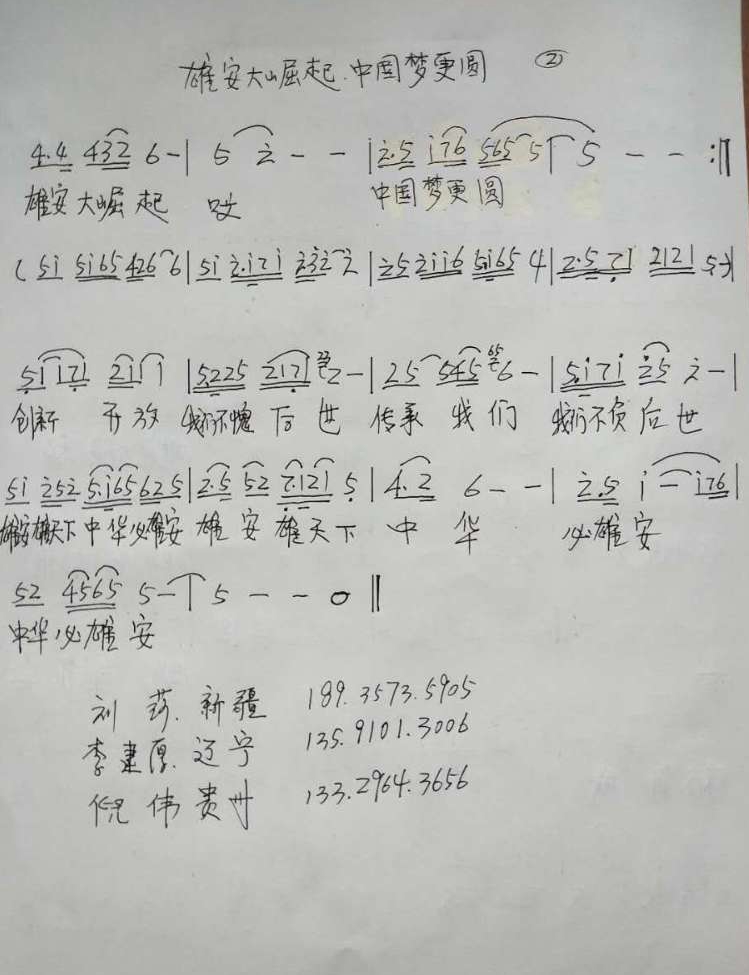 雄安大崛起.中国梦更圆 ②
4.4 432 6 - | 5 2 - - | 2.5 i76 565 5 | 5 - - :||
雄安大崛起 哎 中国梦更圆
( 5i 5i65 426 6 | 5i 2.i7i 232 2 | 25 2ii6 5i65 4 | 2.5 71 2121 5 - ) |
5i i7i 2i i | 5225 2171 2 - | 25 545 6 - | 5.i7i 25 2 - |
创新 开放 我们不愧 后世 传承 我们 我们不负后世
5i 252 5.i65 625 | 2.5 52 7.121 5 | 4.2 6 - - | 2.5 i - i76 |
雄安雄天下中华必雄安 雄安雄天下 中 华 必雄安
52 4565 5 - | 5 - - 0 ||
中华必雄安
刘 新疆 189.3573.5905
李建厚.辽宁 135.9101.3006
倪伟贵州 133.2964.3656